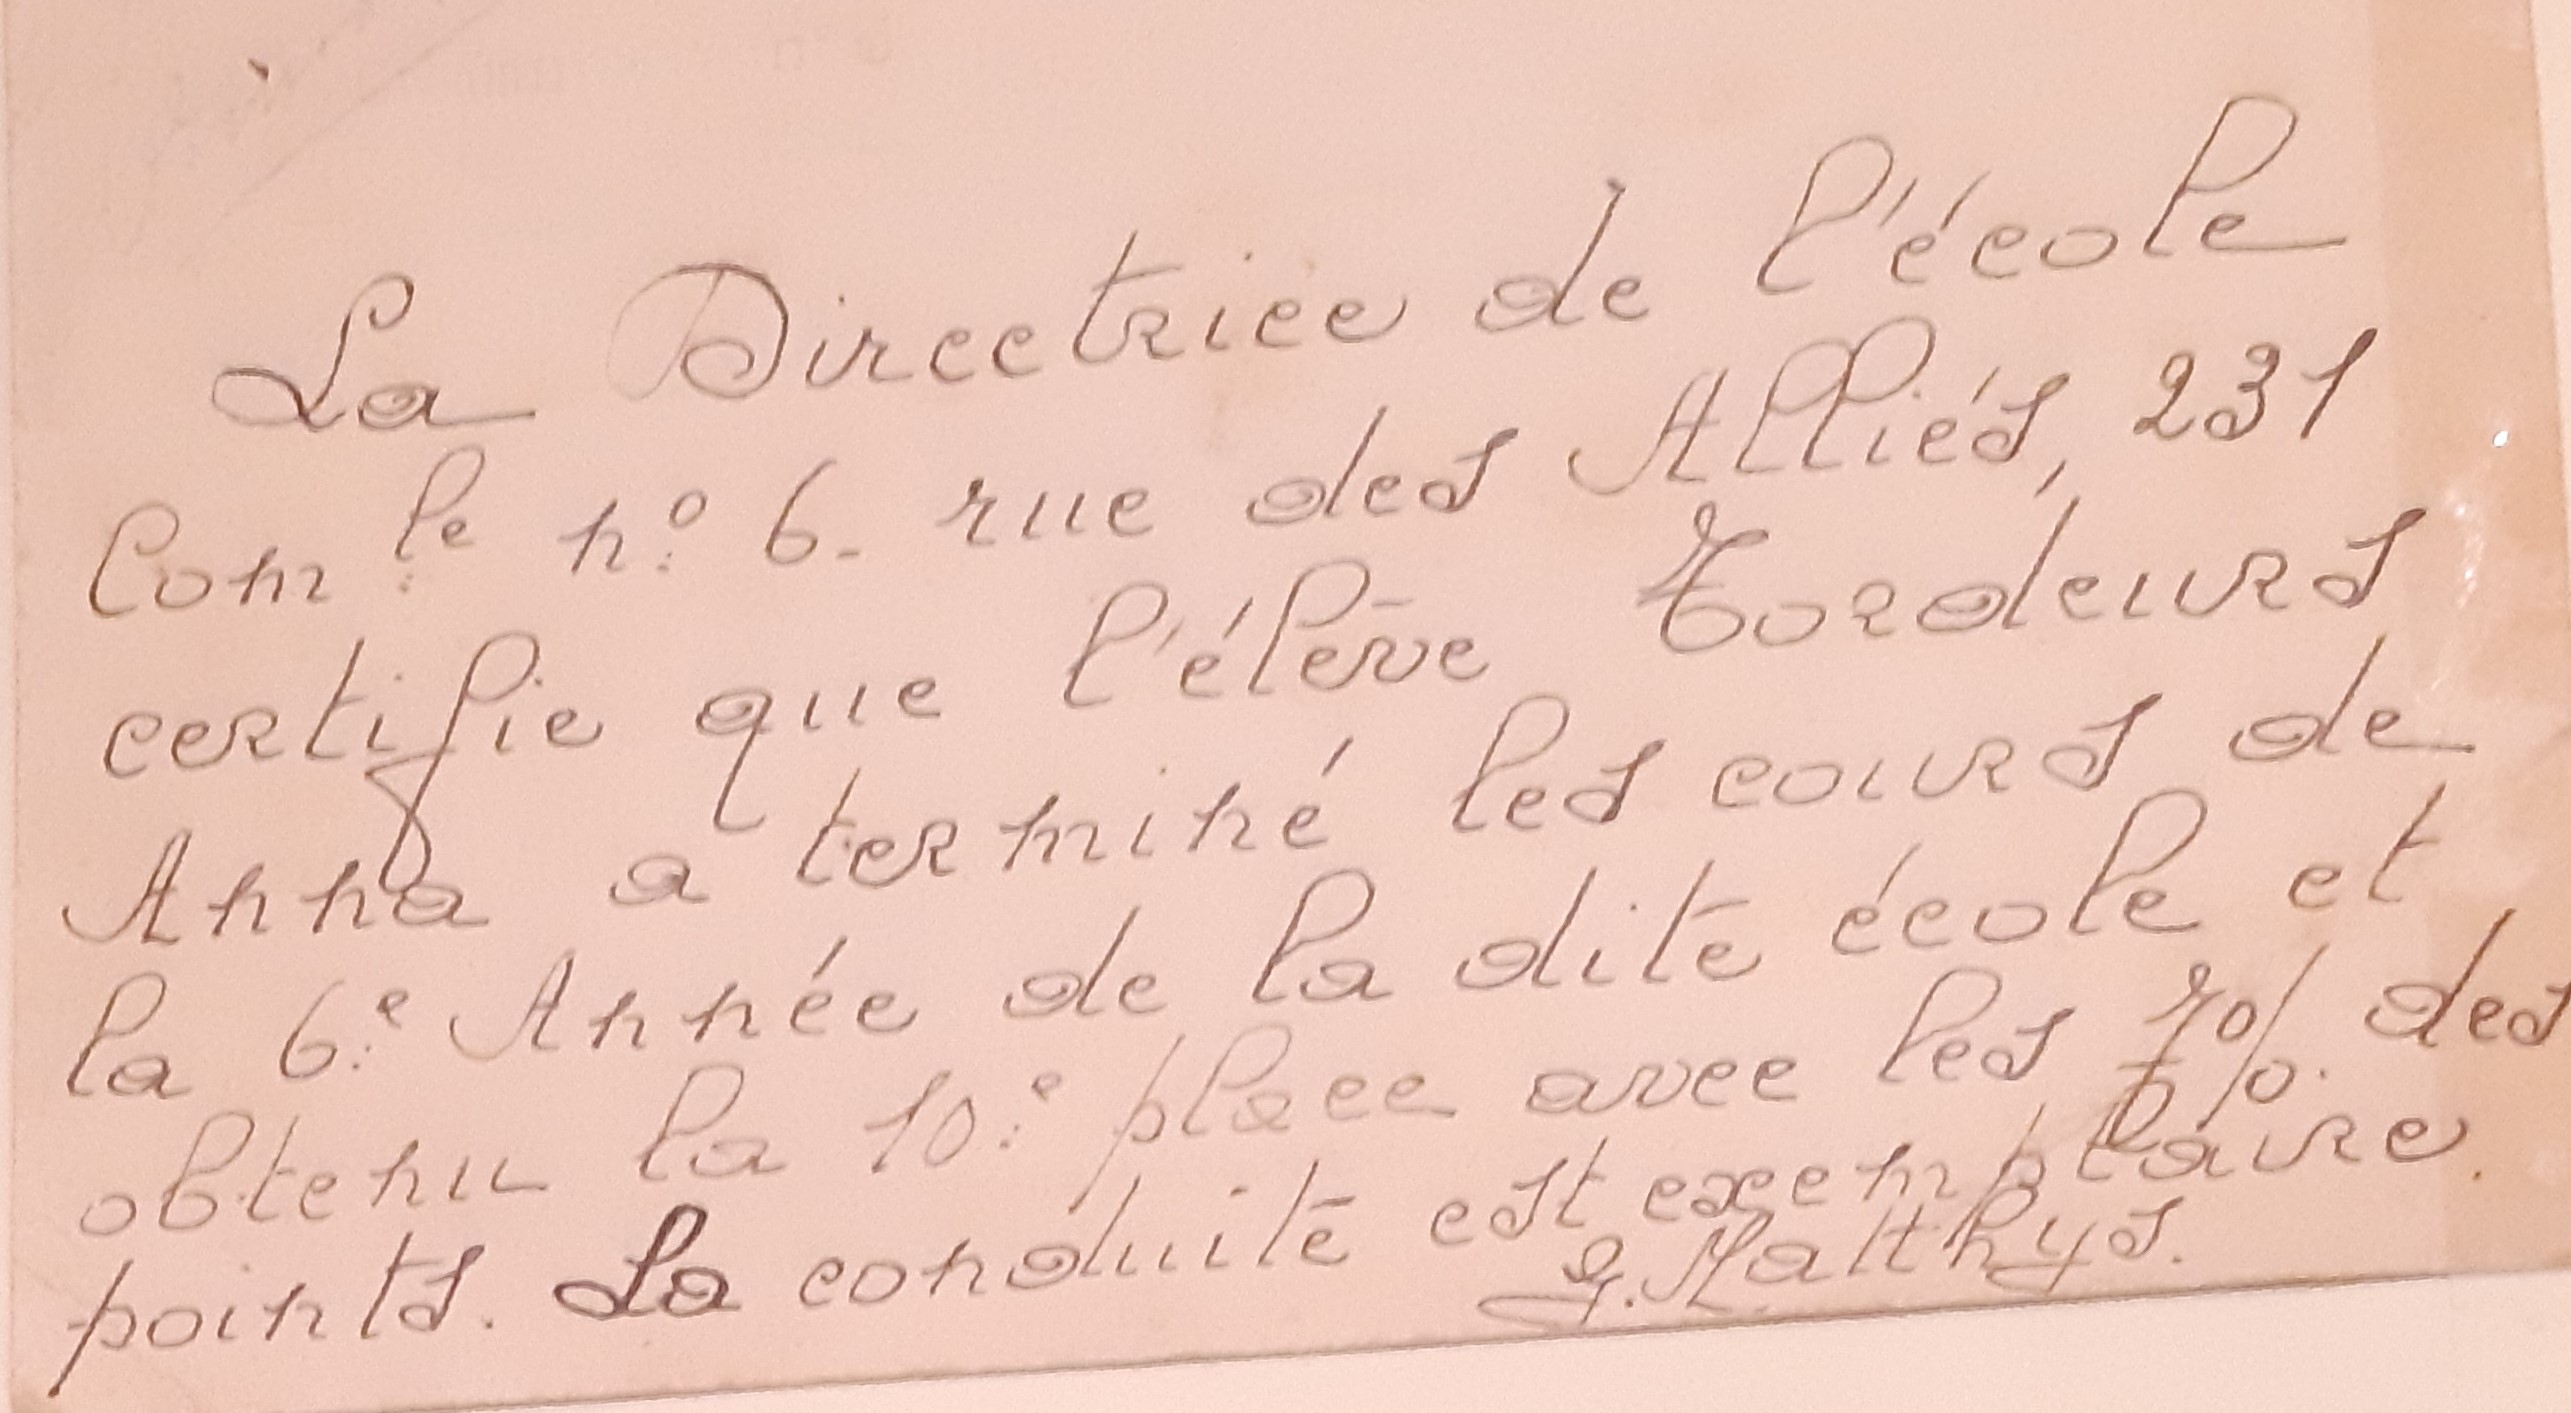 La Directrice de l'école
Com.le n.o 6. rue des Alliés, 231
certifie que l'élève Tordeurs
Anna a terminé les cours de
la 6.e Année de la dite école et
obtenu la 10.e place avec les 70%. des
points. Sa conduite est exemplaire.
G. Matthys.